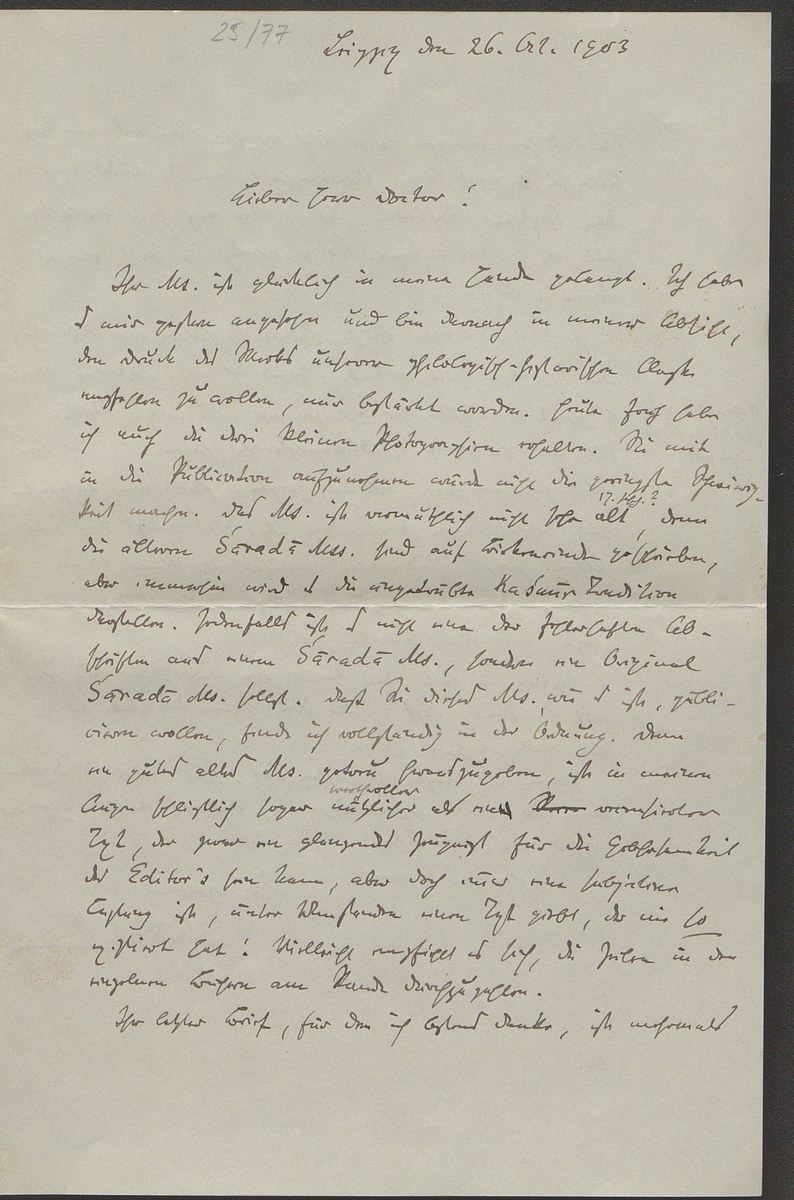 25/77
Leipzig den 26. Oct. 1903
Lieber Herr Doctor!
Ihr Ms. ist glücklich in meine Hände gelangt. Ich habe
es mir gestern angesehen und bin danach in meiner Absicht,
den Druck des Werks unserer philologisch-historischen Classe
empfehlen zu wollen, nur bestärkt worden. Heute früh habe
ich auch die drei kleinen Photographien erhalten. Sie mit
in die Publication aufzunehmen würde nicht die geringste Schwierig-
keit machen. Das Ms. ist vermuthlich nicht sehr alt, denn
17. Jhd.?
die älteren Śāradā Mss. sind auf Birkenrinde geschrieben,
aber immerhin wird es die ungetrübte Kaśmīr Tradition
darstellen. Jedenfalls ist es nicht eine der fehlerhaften Ab-
schriften aus einem Śāradā Ms., sondern ein Original
Śāradā Ms. selbst. Daß Sie dieses Ms. wie es ist, publi-
cieren wollen, finde ich vollständig in der Ordnung. Denn
ein gutes altes Ms. getreu herauszugeben, ist in meinen
werthvoller
Augen schließlich sogar nützlicher als ein
Text, der zwar ein glänzendes Zeugniß für die Gelehrsamkeit
des Editor's sein kann, aber doch immer eine subjective
Fassung ist, unter Umständen einen Text giebt, der nie so
existirt hat! Vielleicht empfiehlt es sich, die Zeilen in den
einzelnen Büchern am Rande durchzuzählen.
Ihr letzter Brief, für den ich bestens danke, ist nochmals